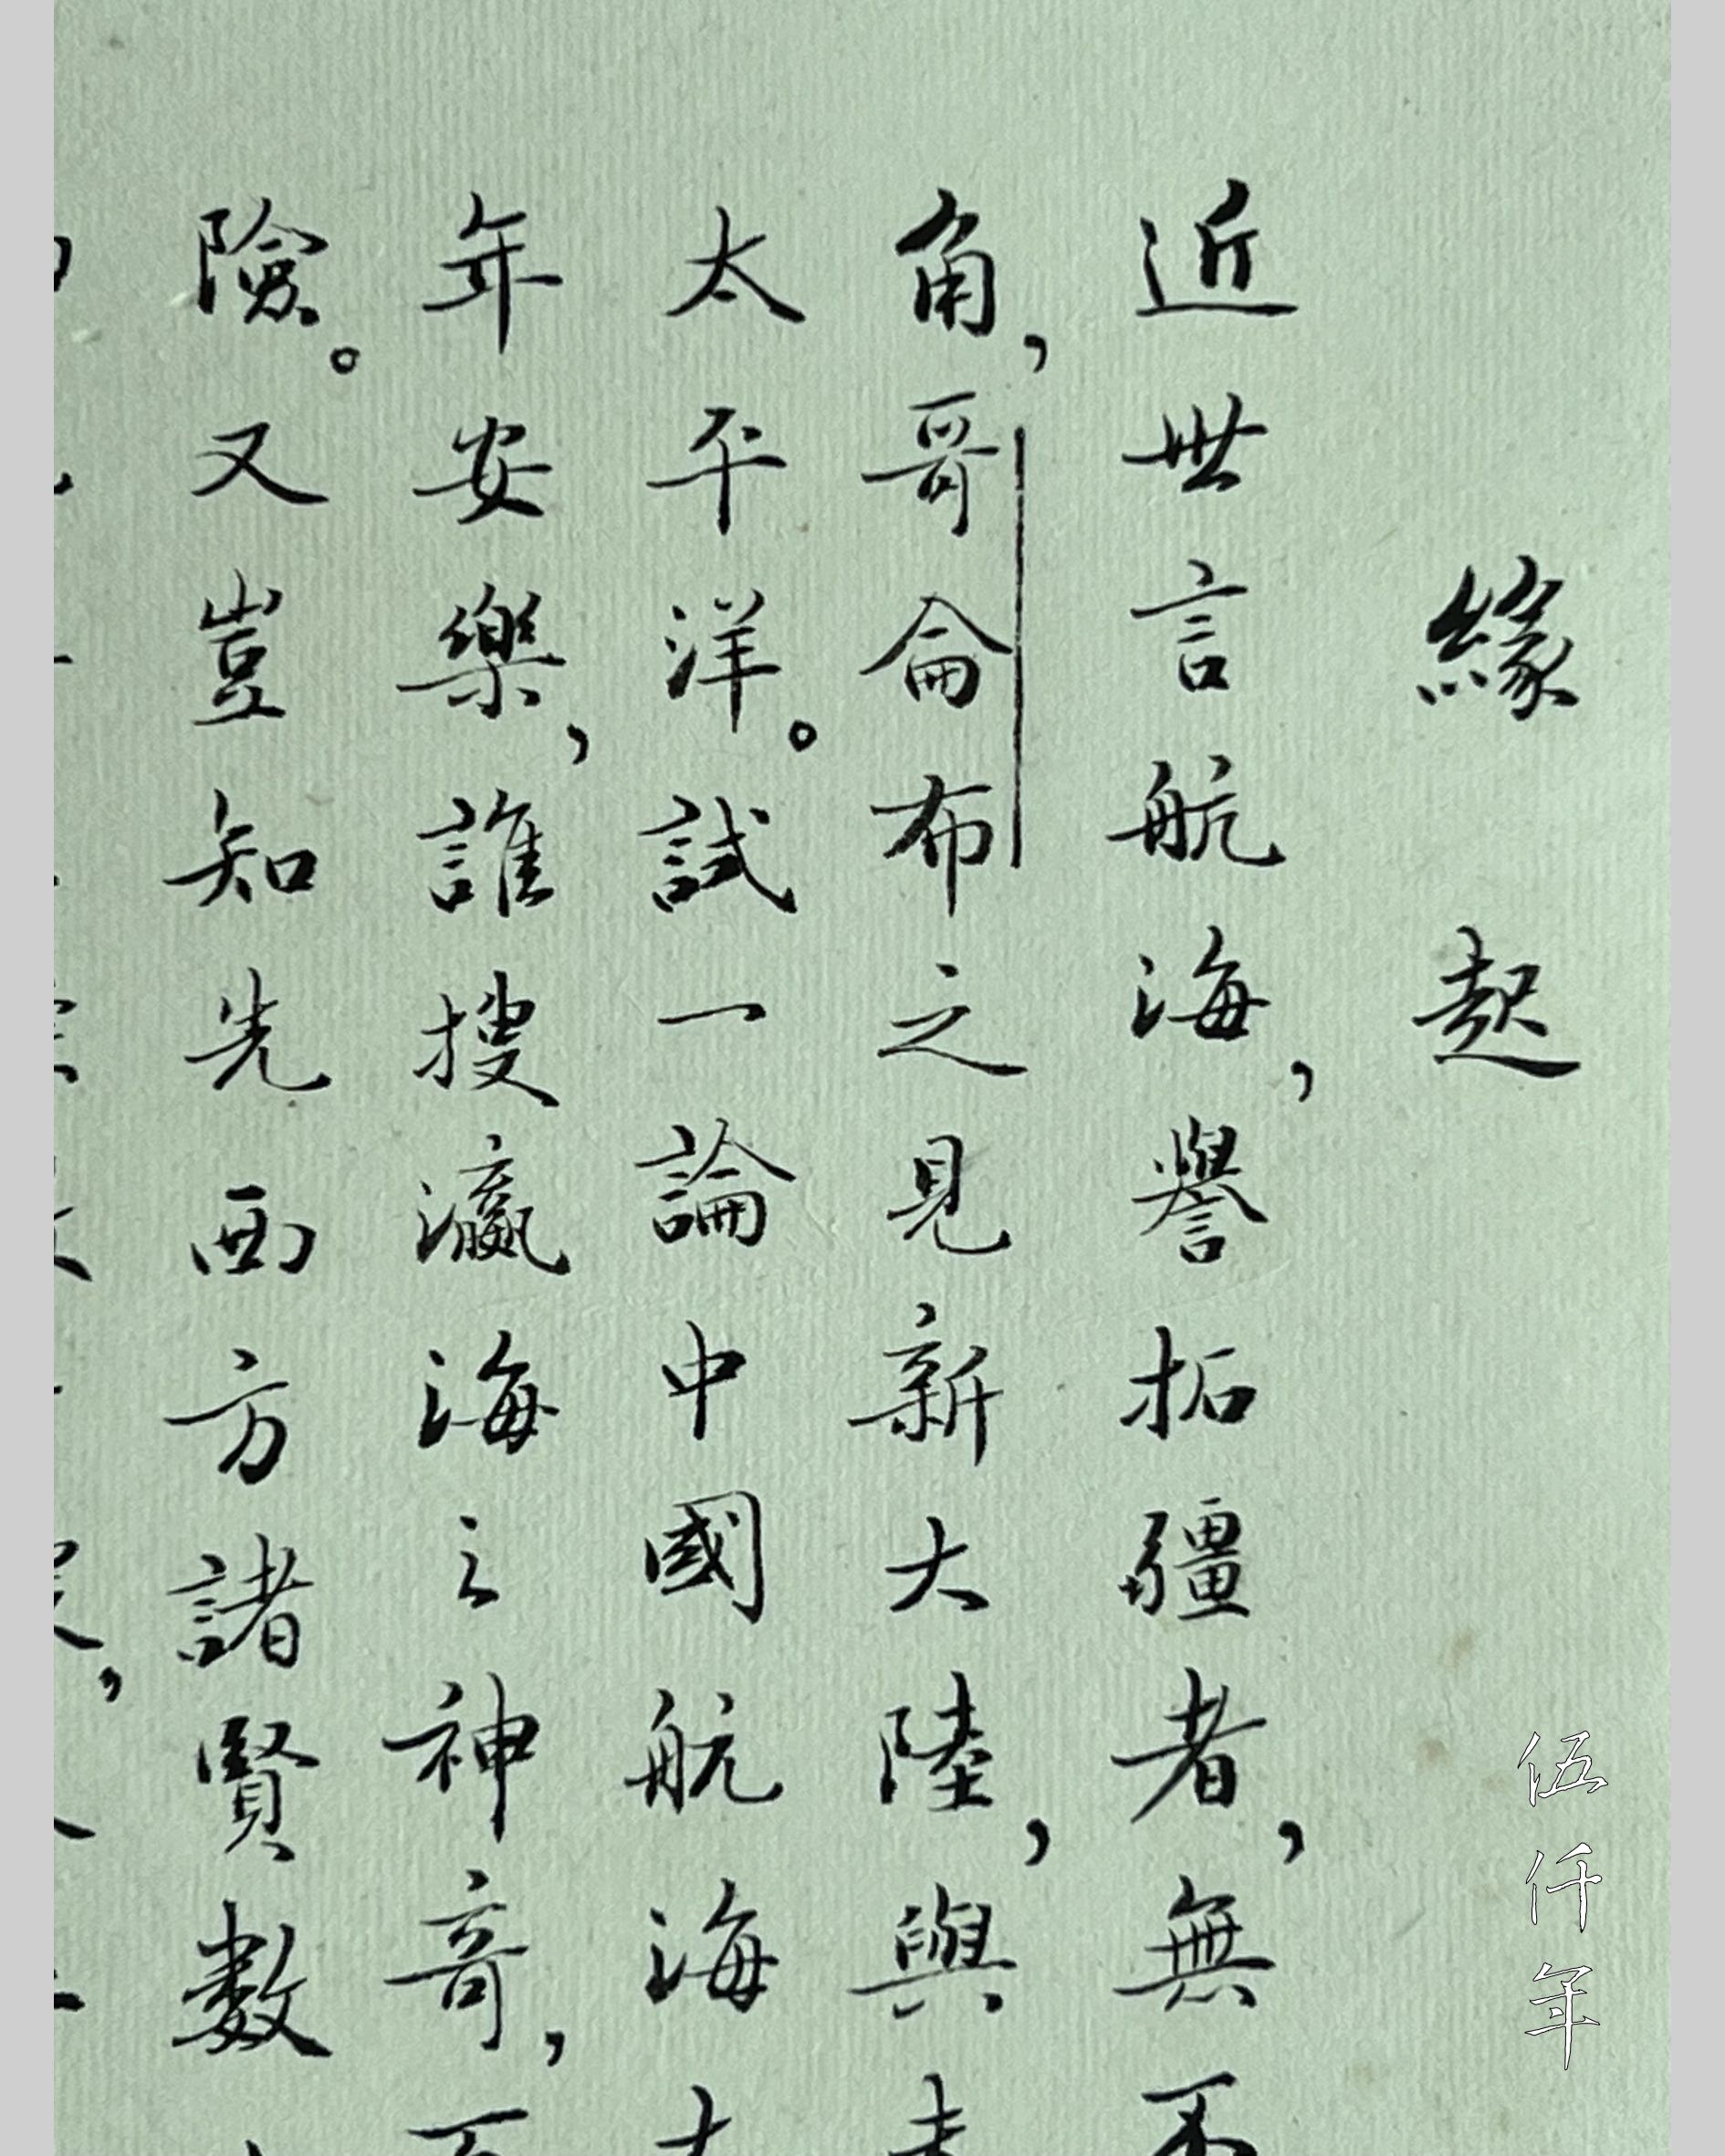 緣起
近世言航海，譽拓疆者，無不
角，哥侖布之見新大陸，與麦
太平洋。試一論中國航海
年安樂，誰搜瀛海之神奇，
險。又豈知先西方諸賢數
伍仟年